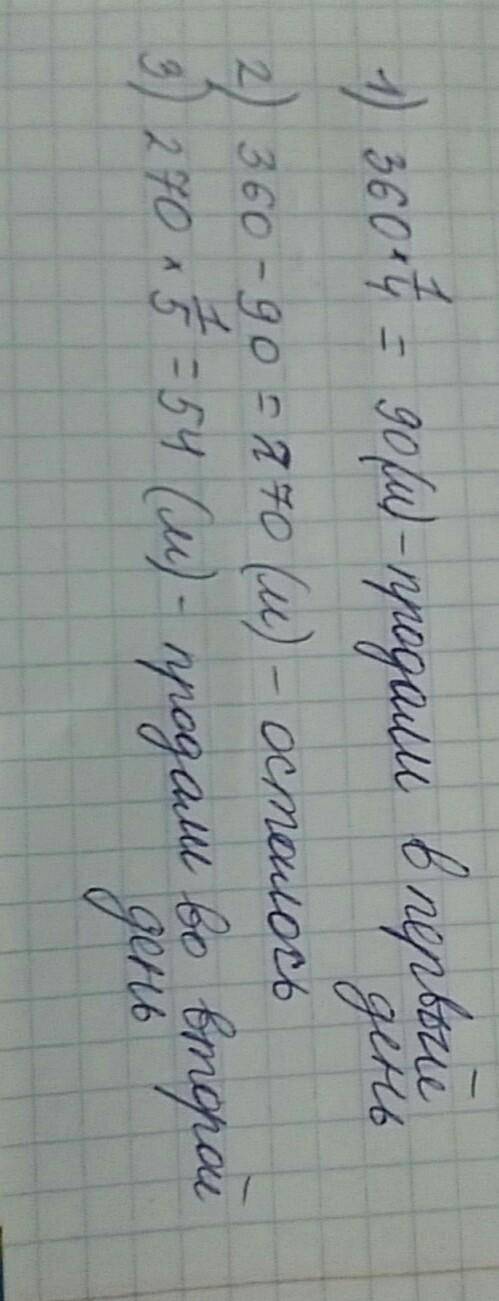 1) 360 × 1/4 = 90 (м) - продали в первый
день
2) 360 - 90 = 270 (м) - осталось
3) 270 × 1/5 = 54 (м) - продали во второй
день